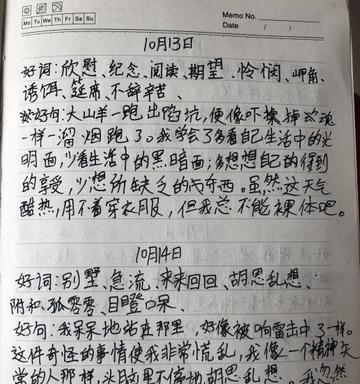 Memo No.
Mo Tu We Th Fr Sa Su
Date / /
10月13日
好词:欣慰、纪念、阅读、期望、怜悯、岬角、
诱饵、筵席、不辞辛苦、
好句:大山羊一跑出陷坑,便像吓掉
一样一溜烟跑了。我学会了多看自己生活中的光
明面,少看生活中的黑暗面;多想想自己的得到
的享受,少想所缺乏的东西。虽然这天气
酷热,用不着穿衣服,但我总不能裸体吧。
10月14日
好词:别墅、急流、来来回回、胡思乱想、
附和、孤零零、目瞪口呆、
好句:我呆呆地站在那里,好像被响雷击中了一样。
这件奇怪的事情使我非常慌乱,我像一个精神失
常的人那样,头脑里不停地胡思乱想、我忽然